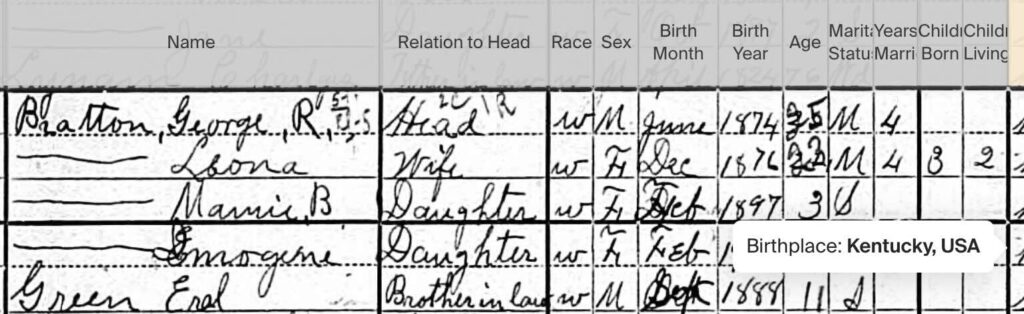 Name Relation to Head Race Sex Birth Month Birth Year Age Marita Status Years Marri Childr Born Childr Living
Bratton, George, R, Head w M June 1874 25 M 4
Leona Wife w F Dec 1876 23 M 4 3 2
Mamie, B Daughter w F Feb 1897 3 S
Imogene Daughter w F Feb
Birthplace: Kentucky, USA
Green Erol Brother in law w M Sept 1888 11 S